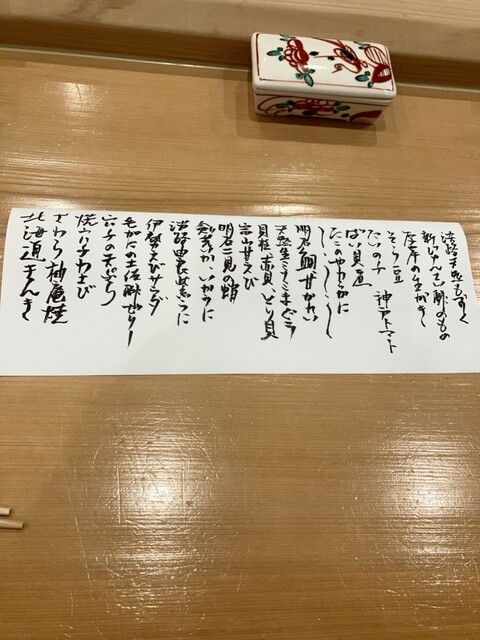 淡路天然もずく
新じゅんさい酢のもの
唐津の生がき
そら豆　神戸トマト
たいの子
ばい貝煮
たこのやわらかに
明石鯛　甘がれい
天然生ミナミまぐろ
貝柱　赤貝　とり貝
富山甘えび
明石二見の蛸
剣先いか　いかうに
淡路由良の赤うに
伊勢えびサラダ
毛がにの土佐酢ゼリー
穴子の天ぷら
焼穴子わさび
さわら柚庵焼
北海道きんき